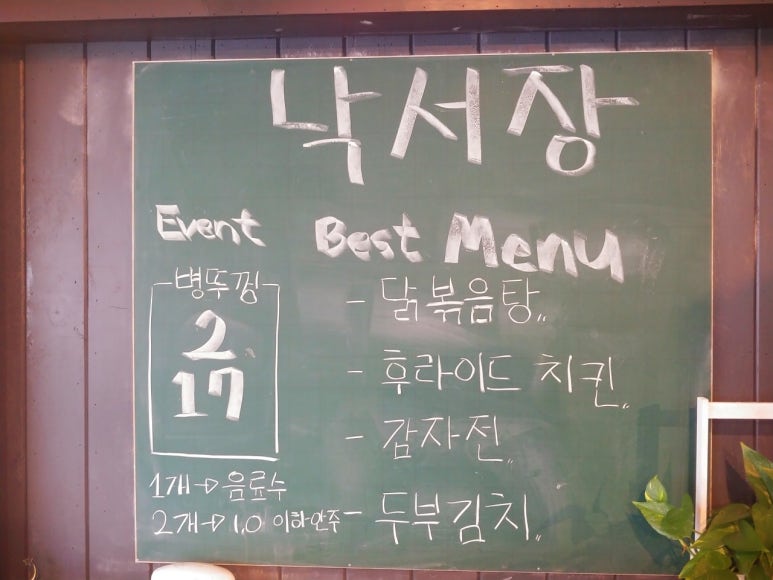 낙서장
Event
Best Menu
병뚜껑
2
17
1개→음료수
2개→1.0 이하안주
- 닭볶음탕〃
- 후라이드 치킨〃
- 감자전〃
- 두부김치〃